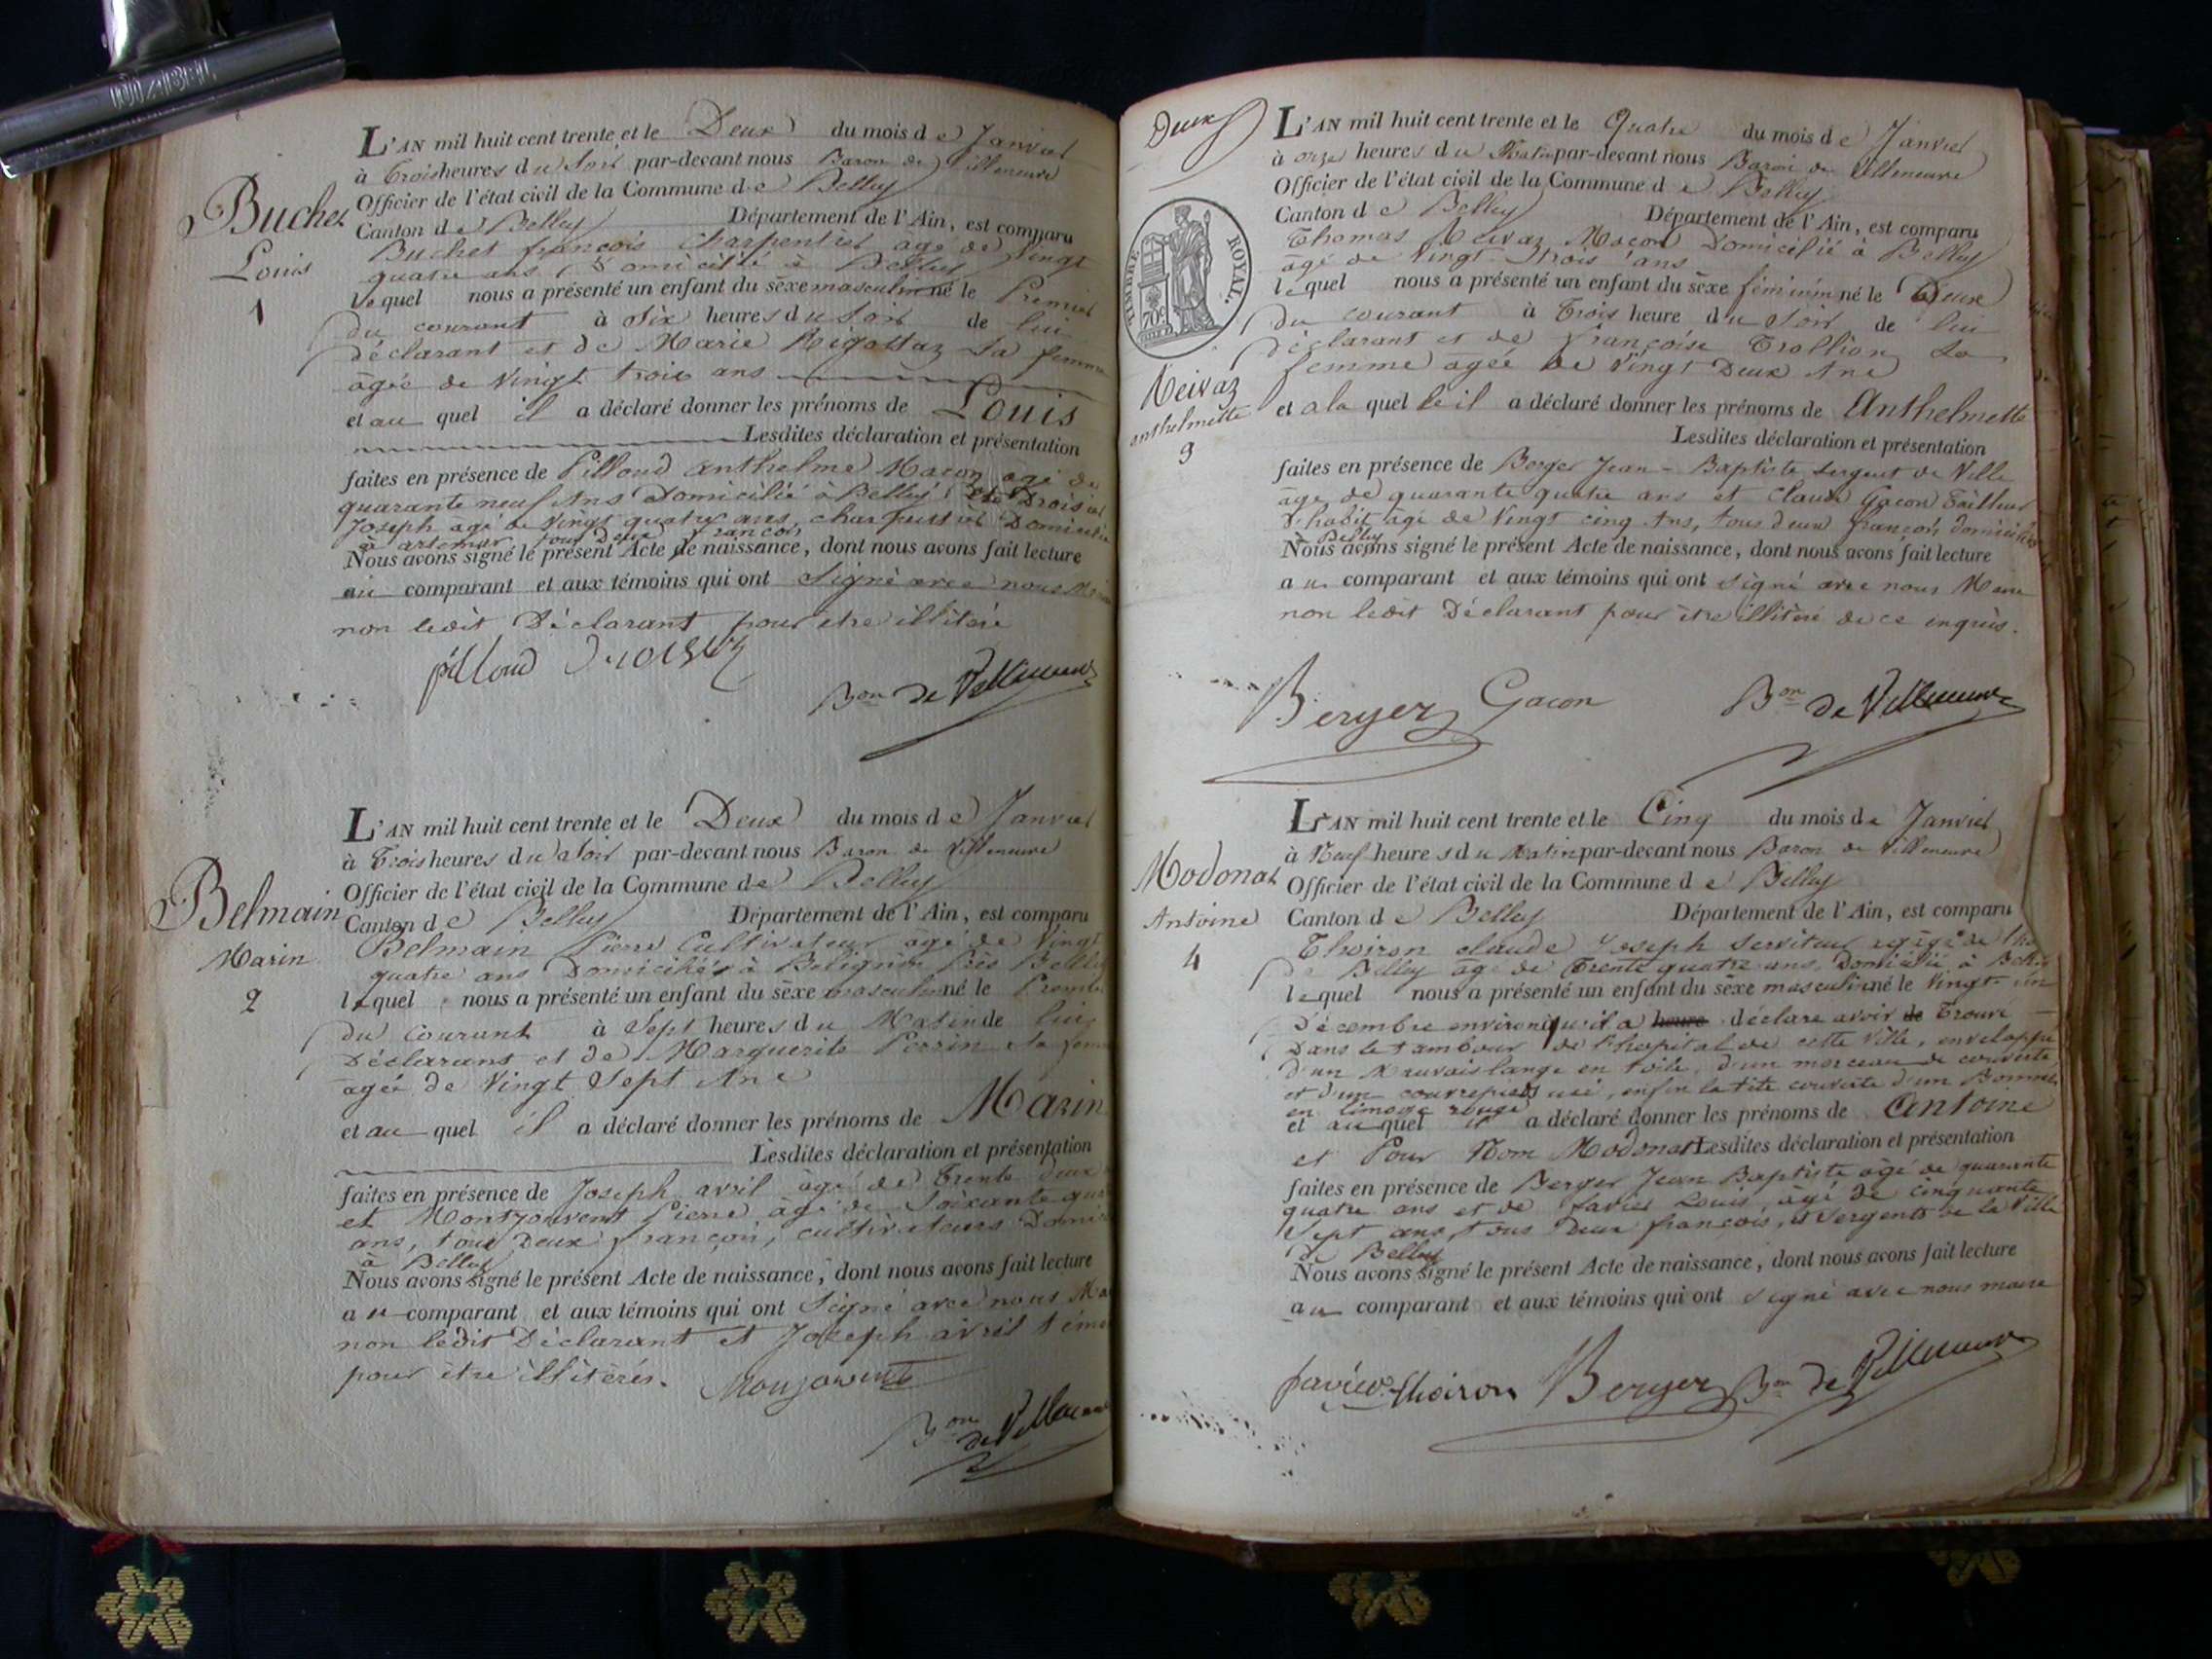 L'AN mil huit cent trente et le Deux du mois de Janvier
à Trois heures du Soir par-devant nous Baron de Villeneuve
Officier de l'état civil de la Commune de Belley
Canton de Belley Département de l'Ain, est comparu
Buchet françois Charpentier age de Vingt
quatre ans Domicilié à Belley
lequel nous a présenté un enfant du sèxe masculin né le Premier
du courant à Six heures du Soir de lui
déclarant et de Marie Rigottaz Sa femme
âgée de Vingt trois ans
et au quel il a déclaré donner les prénoms de Louis
Lesdites déclaration et présentation
faites en présence de Pilloud anthelme Macon age de
quarante neuf Ans Domicilié à Belley et Droisier
Joseph âgé de Vingt quatre ans, charpentier Domicilié
à artemar tous Deux françois
Nous avons signé le présent Acte de naissance, dont nous avons fait lecture
au comparant et aux témoins qui ont Signé avec nous
non ledit Déclarant pour être illitéré
pilloud
Bon de Villeneuve
Buchet
Louis
1
L'AN mil huit cent trente et le Deux du mois de Janvier
à Trois heures du Soir par-devant nous Baron de Villeneuve
Officier de l'état civil de la Commune de Belley
Canton de Belley Département de l'Ain, est comparu
Belmain Pierre Cultivateur âgé de Vingt
quatre ans Domicilié à Près Belley
lequel nous a présenté un enfant du sèxe masculin né le
du Courant à Sept heures du Matin de lui
Déclarant et de Marguerite Perrin
agée de Vingt Sept Ans
et au quel il a déclaré donner les prénoms de Marin
Lesdites déclaration et présentation
faites en présence de Joseph avril âgé de Trente Deux
et Montjouvent Pierre âgé de Soixante
ans, tous Deux françois, cultivateurs
à Belley
Nous avons signé le présent Acte de naissance, dont nous avons fait lecture
au comparant et aux témoins qui ont Signé avec nous
non ledit Déclarant et Joseph avril
pour être illitérés.
Bon de Villeneuve
Belmain
Marin
2
Deux
TIMBRE ROYAL.
70c
L'AN mil huit cent trente et le Quatre du mois de Janvier
à onze heures du Matin par-devant nous Baron de Villeneuve
Officier de l'état civil de la Commune de Belley
Canton de Belley Département de l'Ain, est comparu
Thomas Neivaz Macon Domicilié à Belley
âgé de Vingt trois ans
lequel nous a présenté un enfant du sèxe féminin né le Deux
du courant à Trois heure du Soir de lui
déclarant et de françoise Trollion Sa
femme agée de Vingt Deux Ans
et a la quelle il a déclaré donner les prénoms de Anthelmette
Lesdites déclaration et présentation
faites en présence de Berger Jean-Baptiste Sergent de Ville
âgé de quarante quatre ans et Claude Gacon Tailleur
d'habit âgé de Vingt cinq Ans, tous deux françois, domiciliés
à Belley
Nous avons signé le présent Acte de naissance, dont nous avons fait lecture
au comparant et aux témoins qui ont Signé avec nous Maire
non ledit Déclarant pour être illitéré de ce enquis.
Berger Gacon Bon de Villeneuve
Neivaz
anthelmette
3
L'AN mil huit cent trente et le Cinq du mois de Janvier
à Neuf heures du Matin par-devant nous Baron de Villeneuve
Officier de l'état civil de la Commune de Belley
Canton de Belley Département de l'Ain, est comparu
Thoiron claude Joseph Serviteur
de Belley âgé de Trente quatre ans, Domicilié à Belley
lequel nous a présenté un enfant du sèxe masculin né le Vingt un
Décembre environ qu'il a heure déclaré avoir Trouvé
Dans le tambour de l'hopital de cette Ville, enveloppé
d'un Mauvais lange en toile, d'un morceau de couverte
et d'un couvrepieds usé, enfin la tête couverte d'un Bonnet
en limoge rouge
et au quel il a déclaré donner les prénoms de Antoine
et Pour Nom Modonat Lesdites déclaration et présentation
faites en présence de Berger Jean Baptiste âgé de quarante
quatre ans et de favier Louis, âgé de cinquante
Sept ans, tous Deux françois, et Sergents de la Ville
de Belley
Nous avons signé le présent Acte de naissance, dont nous avons fait lecture
au comparant et aux témoins qui ont Signé avec nous maire
favier Thoiron Berger Bon de Villeneuve
Modonat
Antoine
4